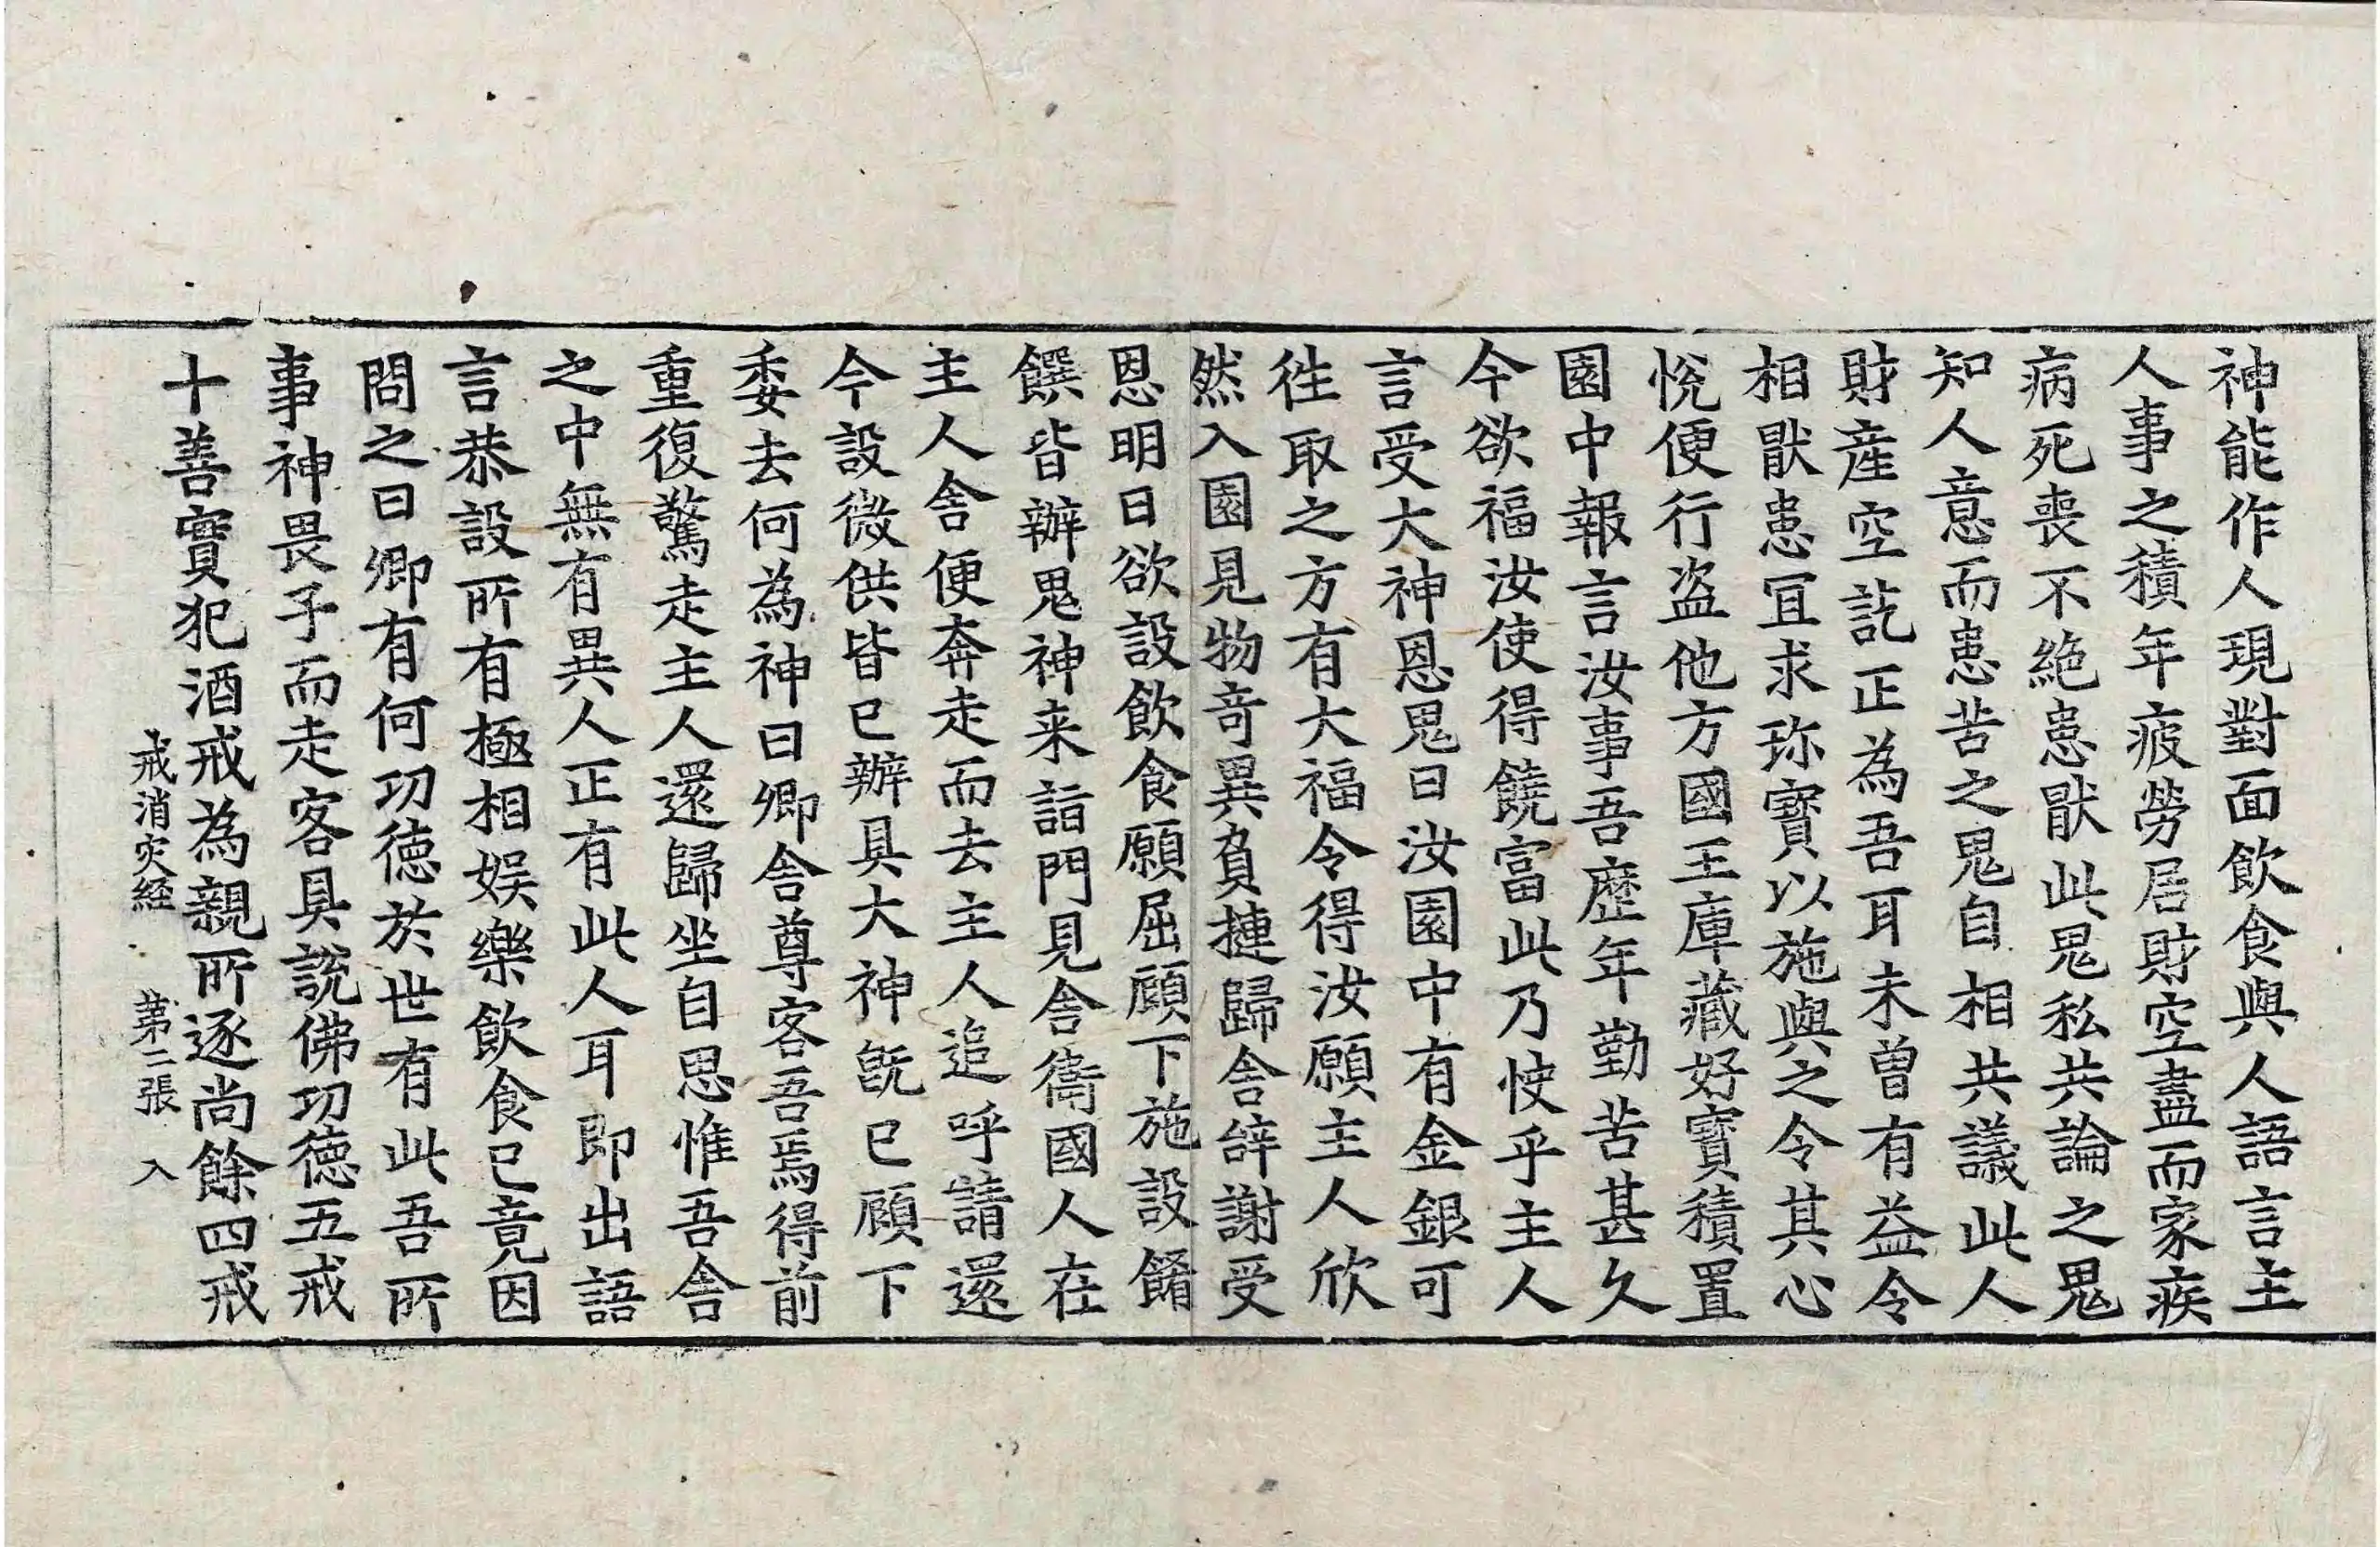 神能作人現對面飲食與人語言主
人事之積年疲勞居財空盡而家疾
病死喪不絶患猒此鬼私共論之鬼
知人意而患苦之鬼自相共議此人
財産空訖正為吾耳未曽有益令
相猒患冝求珎寳以施與之令其心
悅便行盗他方國王庫藏好寳積置
園中報言汝事吾歷年勤苦甚久
今欲福汝使得饒富此乃快乎主人
言受大神恩鬼曰汝園中有金銀可
徃取之方有大福令得汝願主人欣
然入園見物竒異負摙歸舎辝謝受
恩明日欲設飲食願屈顧下施設餚
饌皆辦鬼神来詣門見舎衞國人在
主人舎便奔走而去主人追呼請還
今設微供皆已辦具大神旣已顧下
委去何為神曰卿舎尊客吾焉得前
重復驚走主人還歸坐自思惟吾舎
之中無有異人正有此人耳即出語
言恭設所有極相娱樂飲食已竟因
問之曰卿有何功德於世有此吾所
事神畏子而走客具說佛功德五戒
十善實犯酒戒為親所逐尚餘四戒
戒消灾経 第二張 入